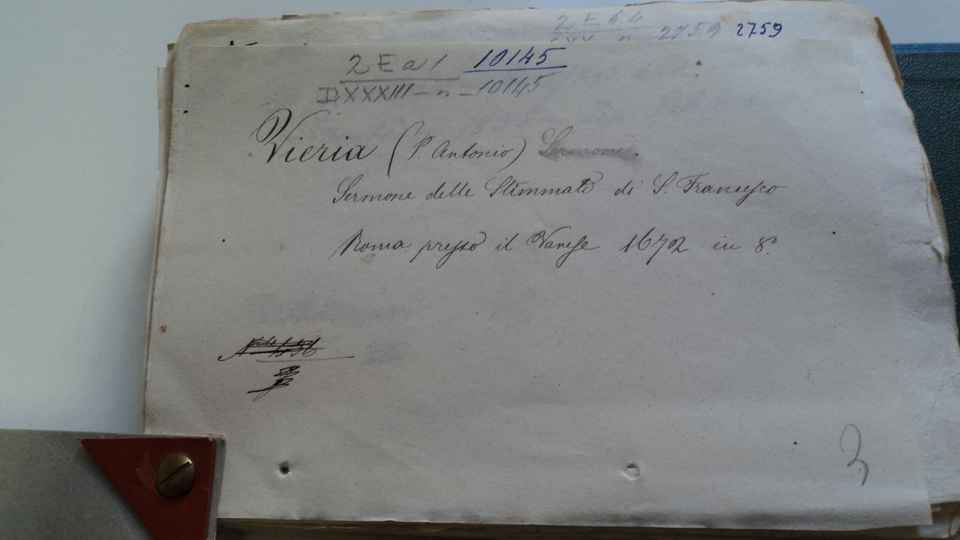 2759 2759
2 E a 1 10145
DXXXIII - n - 10145
Vieria (P. Antonio) Sermone.
Sermone delle Stimmate di S. Francesco
Roma presso il Varese 1672 in 8.°
3